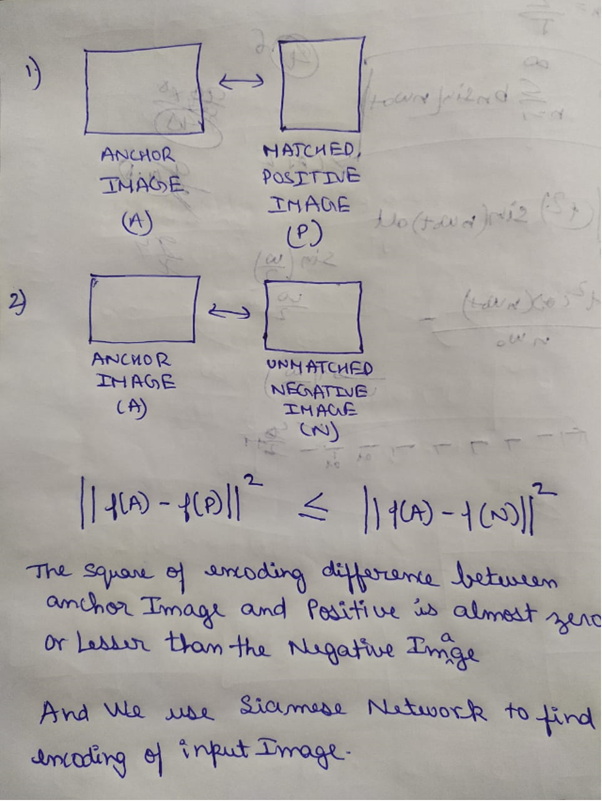 1)
ANCHOR
IMAGE.
(A)
MATCHED,
POSITIVE
IMAGE
(P)
2)
ANCHOR
IMAGE
(A)
UNMATCHED
NEGATIVE
IMAGE
(N)
||f(A) - f(P)||² ≤ ||f(A) - f(N)||²
The square of encoding difference between
anchor Image and Positive is almost zero
or Lesser than the Negative Image
And We use Siamese Network to find
encoding of input Image.